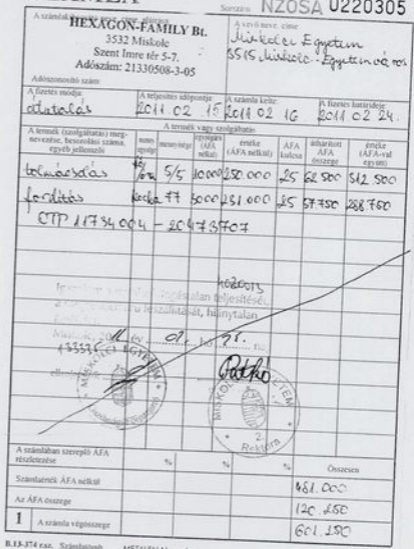 NZ0SA U220305
HEXAGON-FAMILY Bt.
3532 Miskolc
Szent Imre tér 5-7.
Adószám: 21330508-3-05
A vevő neve, címe:
Miskolci Egyetem
3515 Miskolc - Egyetemváros
Adóazonosító szám
A fizetés módja
A teljesítés időpontja
A számla kelte
A fizetés határideje
átutalás 2011. 02. 15. 2011 02 16 2011 02 24.
A termék (szolgáltatás) meg-
nevezése, besorolási száma,
egyéb jellemzői
A termék vagy szolgáltatás
menny. egysége
mennyisége
egységára (ÁFA nélkül)
értéke (ÁFA nélkül)
ÁFA kulcsa
áthárított ÁFA összege
értéke (ÁFA-val együtt)
tolmácsolás 5/5 10000 250.000 25 62.500 312.500
fordítás 77 3000 231.000 25 57.750 288.750
OTP 11734004 - 20473707
teljesítését,
hiánytalan
Miskolc, 20
MISKOLCI EGYETEM
2.
Rektora
A számlában szereplő ÁFA
részletezése % % % Összesen
Számlaérték ÁFA nélkül 481.000
Az ÁFA összege 120.250
1 A számla végösszege 601.250
B.13-374 r.sz. Számlatömb